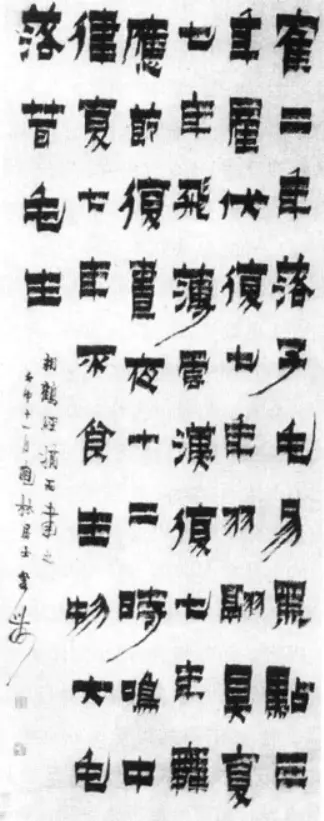 寉二年落子毛易黑點三
年產伏復七年羽翮具復
七年飛薄雲漢復七年舞
應節復晝夜十二時鳴中
律復七年不食生物大毛
落茸毛生
相鶴經書之
十一月林居士